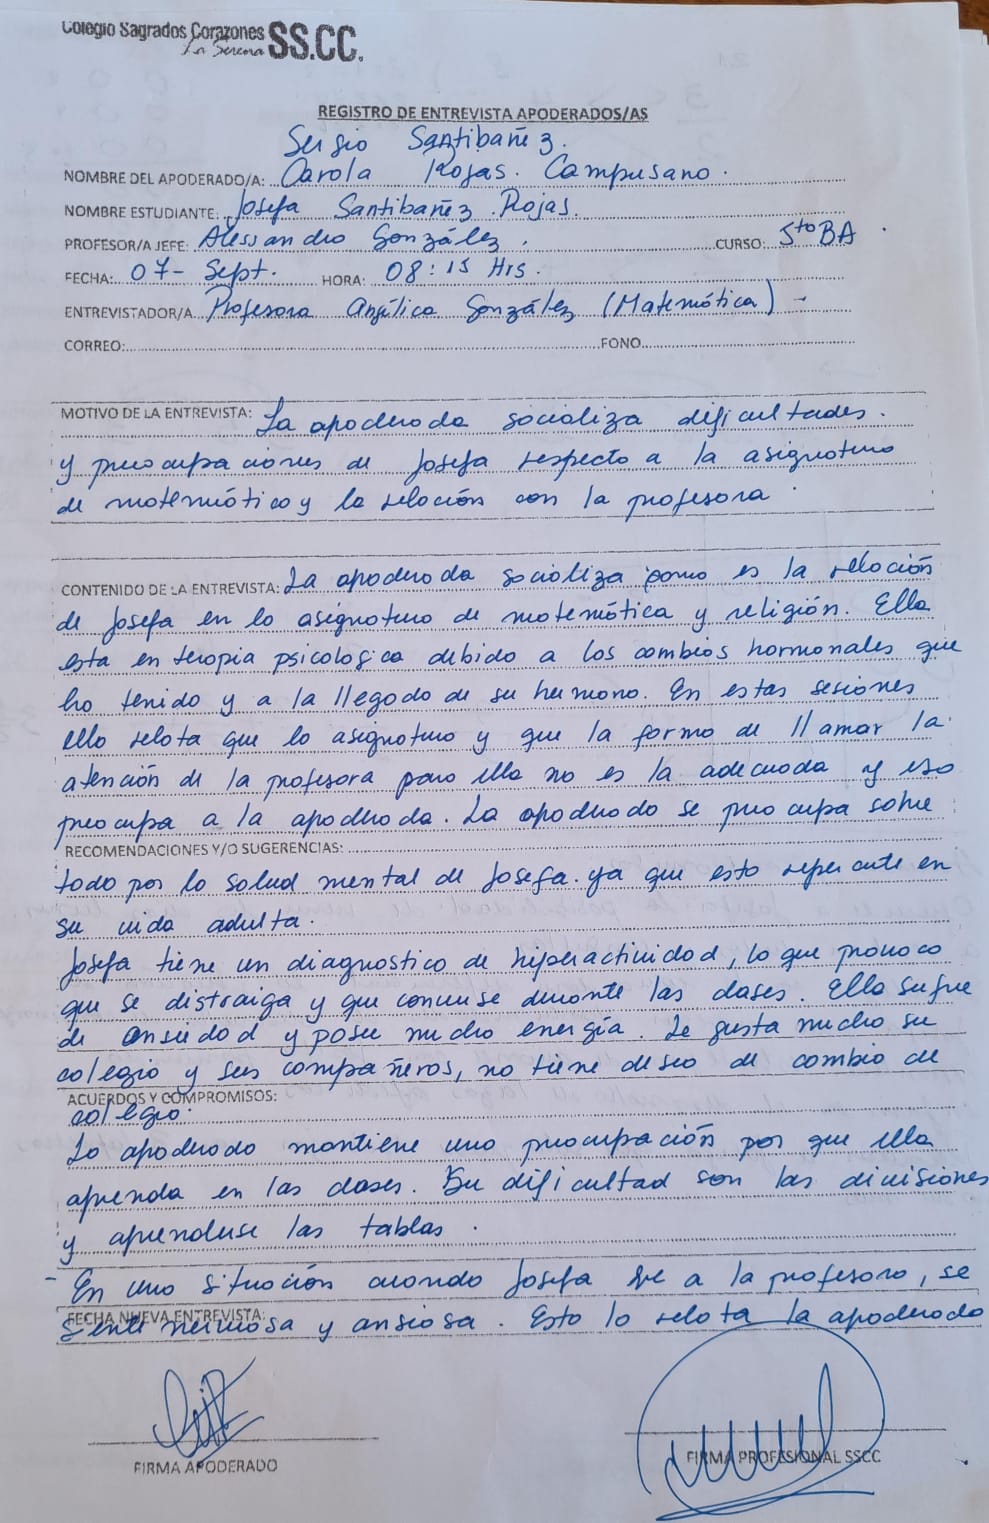 Colegio Sagrados Corazones SS.CC.
La Serena
REGISTRO DE ENTREVISTA APODERADOS/AS
Sergio Santibañez.
NOMBRE DEL APODERADO/A: Carola Rojas. Campusano.
NOMBRE ESTUDIANTE: Josefa Santibañez Rojas.
PROFESOR/A JEFE: Alessandro González. CURSO: 5to BA
FECHA: 07- Sept. HORA: 08:15 Hrs.
ENTREVISTADOR/A Profesora Angélica González (Matemática) -
CORREO: FONO
MOTIVO DE LA ENTREVISTA: La apoderada socializa dificultades.
y preocupaciones de Josefa respecto a la asignatura
de matemática y la relación con la profesora.
CONTENIDO DE LA ENTREVISTA: La apoderada socializa como es la relación
de Josefa en la asignatura de matemática y religión. Ella
esta en terapia psicologica debido a los cambios hormonales que
ha tenido y a la llegada de su hermano. En estas sesiones
ella relata que la asignatura y que la forma de llamar la
atención de la profesora para ella no es la adecuada y eso
preocupa a la apoderada. La apoderada se preocupa sobre
RECOMENDACIONES Y/O SUGERENCIAS:
todo por la salud mental de Josefa. ya que esto repercute en
su vida adulta.
Josefa tiene un diagnostico de hiperactividad, lo que provoca
que se distraiga y que converse durante las clases. Ella sufre
de ansiedad y posee mucho energía. Le gusta mucho su
colegio y sus compañeros, no tiene deseo de cambio de
ACUERDOS Y COMPROMISOS:
colegio.
La apoderada mantiene una preocupación por que ella
aprenda en las clases. Su dificultad son las divisiones
y aprenderse las tablas.
- En una situación cuando Josefa ve a la profesora, se
FECHA NUEVA ENTREVISTA:
siente nerviosa y ansiosa. Esto lo relata la apoderada
FIRMA APODERADO FIRMA PROFESIONAL SSCC